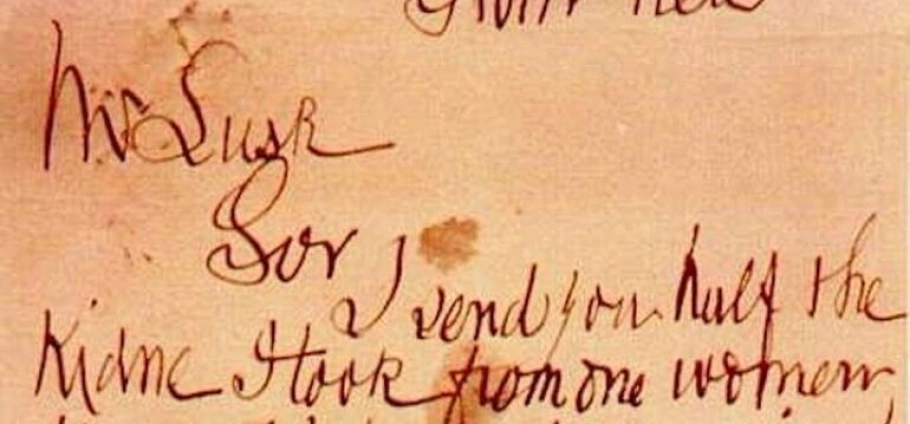 From hell
Mr Lusk
Sor
I send you half the
Kidne I took from one women